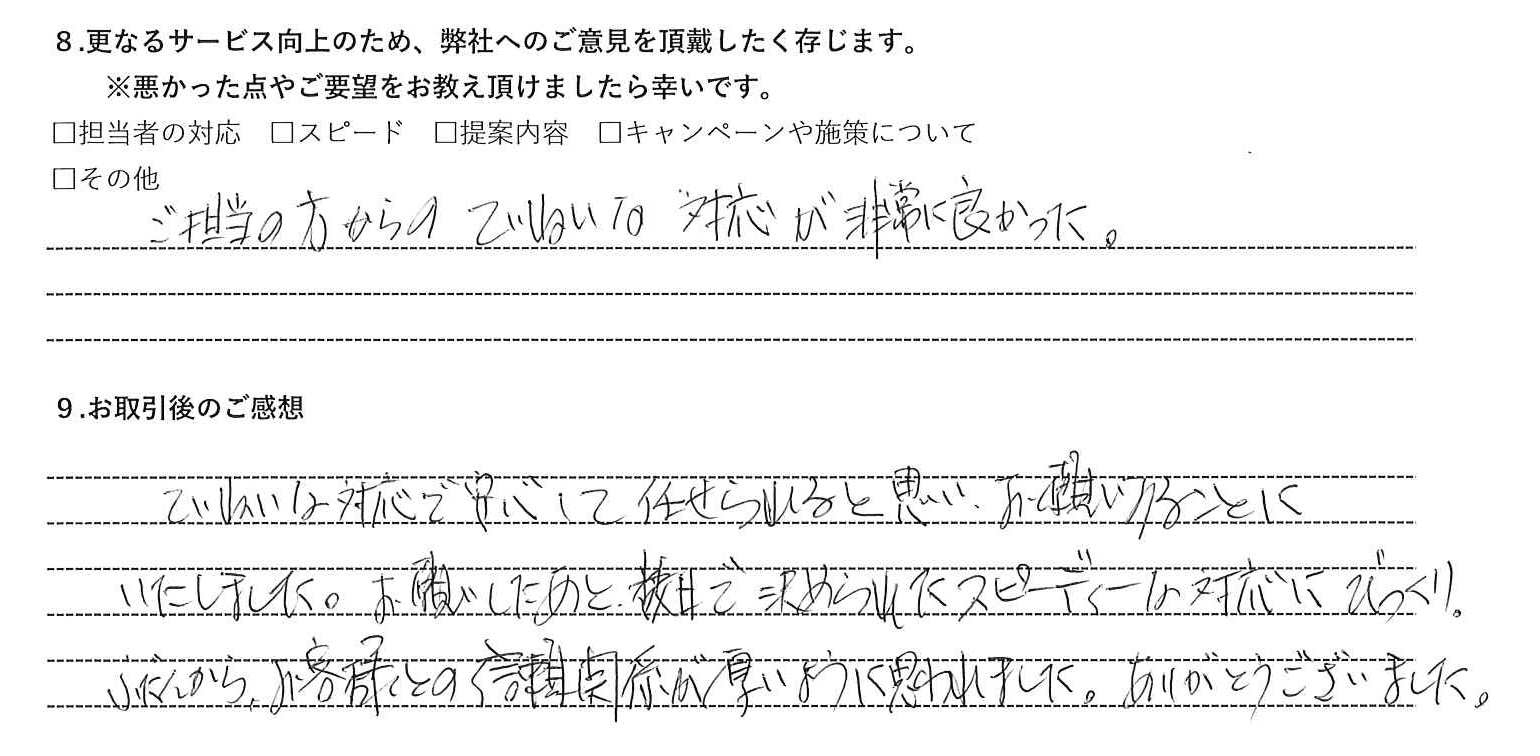 8.更なるサービス向上のため、弊社へのご意見を頂戴したく存じます。
※悪かった点やご要望をお教え頂けましたら幸いです。
□担当者の対応 □スピード □提案内容 □キャンペーンや施策について
□その他
ご担当の方からの ていねいな 対応が 非常に良かった。
9.お取引後のご感想
ていねいな対応で安心して任せられると思い、お願いすることに
いたしました。お願いしたあと、数日で決められたスピーディーな対応にびっくり。
ふだんから、お客様との信頼関係が厚いように思われました。ありがとうございました。